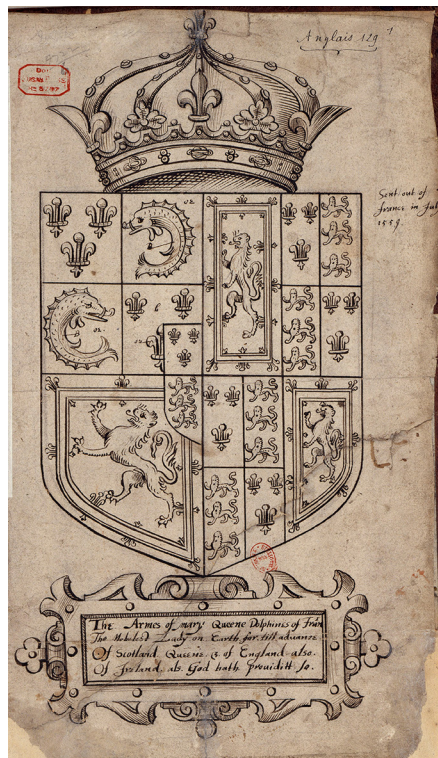 Anglais 129
Sent out of
france in Jul
1559.
oz.
oz.
b
oz.
The Armes of mary Queene Dolphines of fran
The Lady on Earth for till advance
Of Scotland Queene, & of England also.
Of Ireland als God hath providitt so.